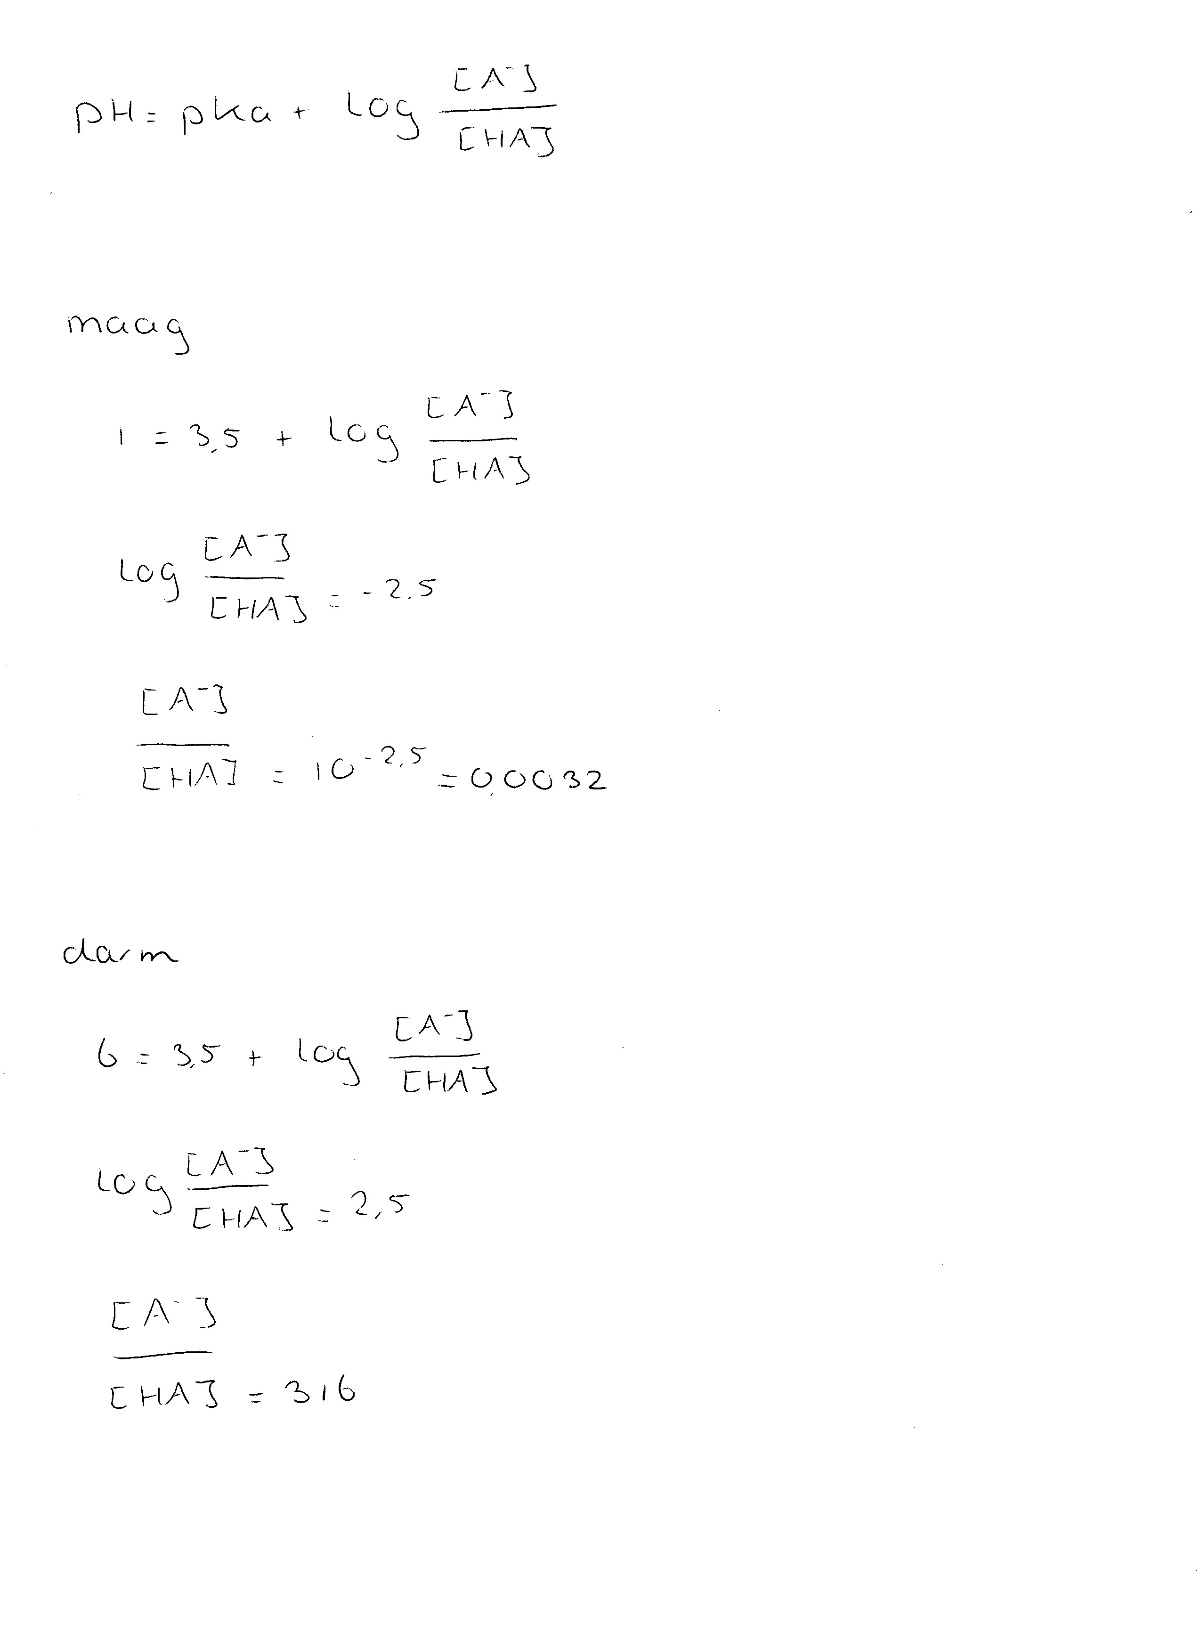 pH = pka + log [A⁻]/[HA]
maag
1 = 3,5 + log [A⁻]/[HA]
log [A⁻]/[HA] = -2,5
[A⁻]/[HA] = 10^-2,5 = 0,0032
darm
6 = 3,5 + log [A⁻]/[HA]
log [A⁻]/[HA] = 2,5
[A⁻]/[HA] = 316